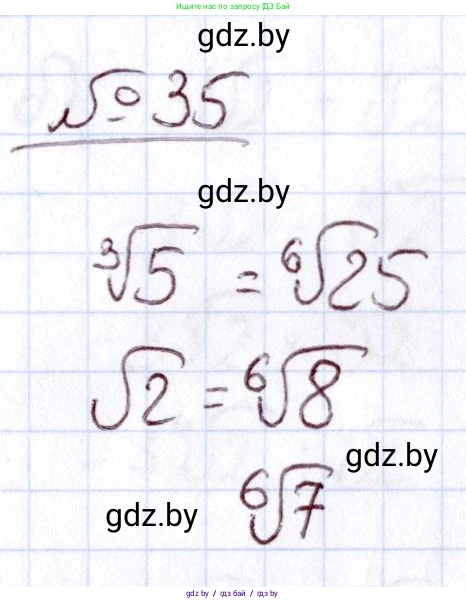 Ищите нас по запросу ГДЗ Бай
gdz.by
№ 35
gdz.by
∛5 = ⁶√25
√2 = ⁶√8
gdz.by
⁶√7
gdz.by
gdz.by / гдз бай / гдз.by